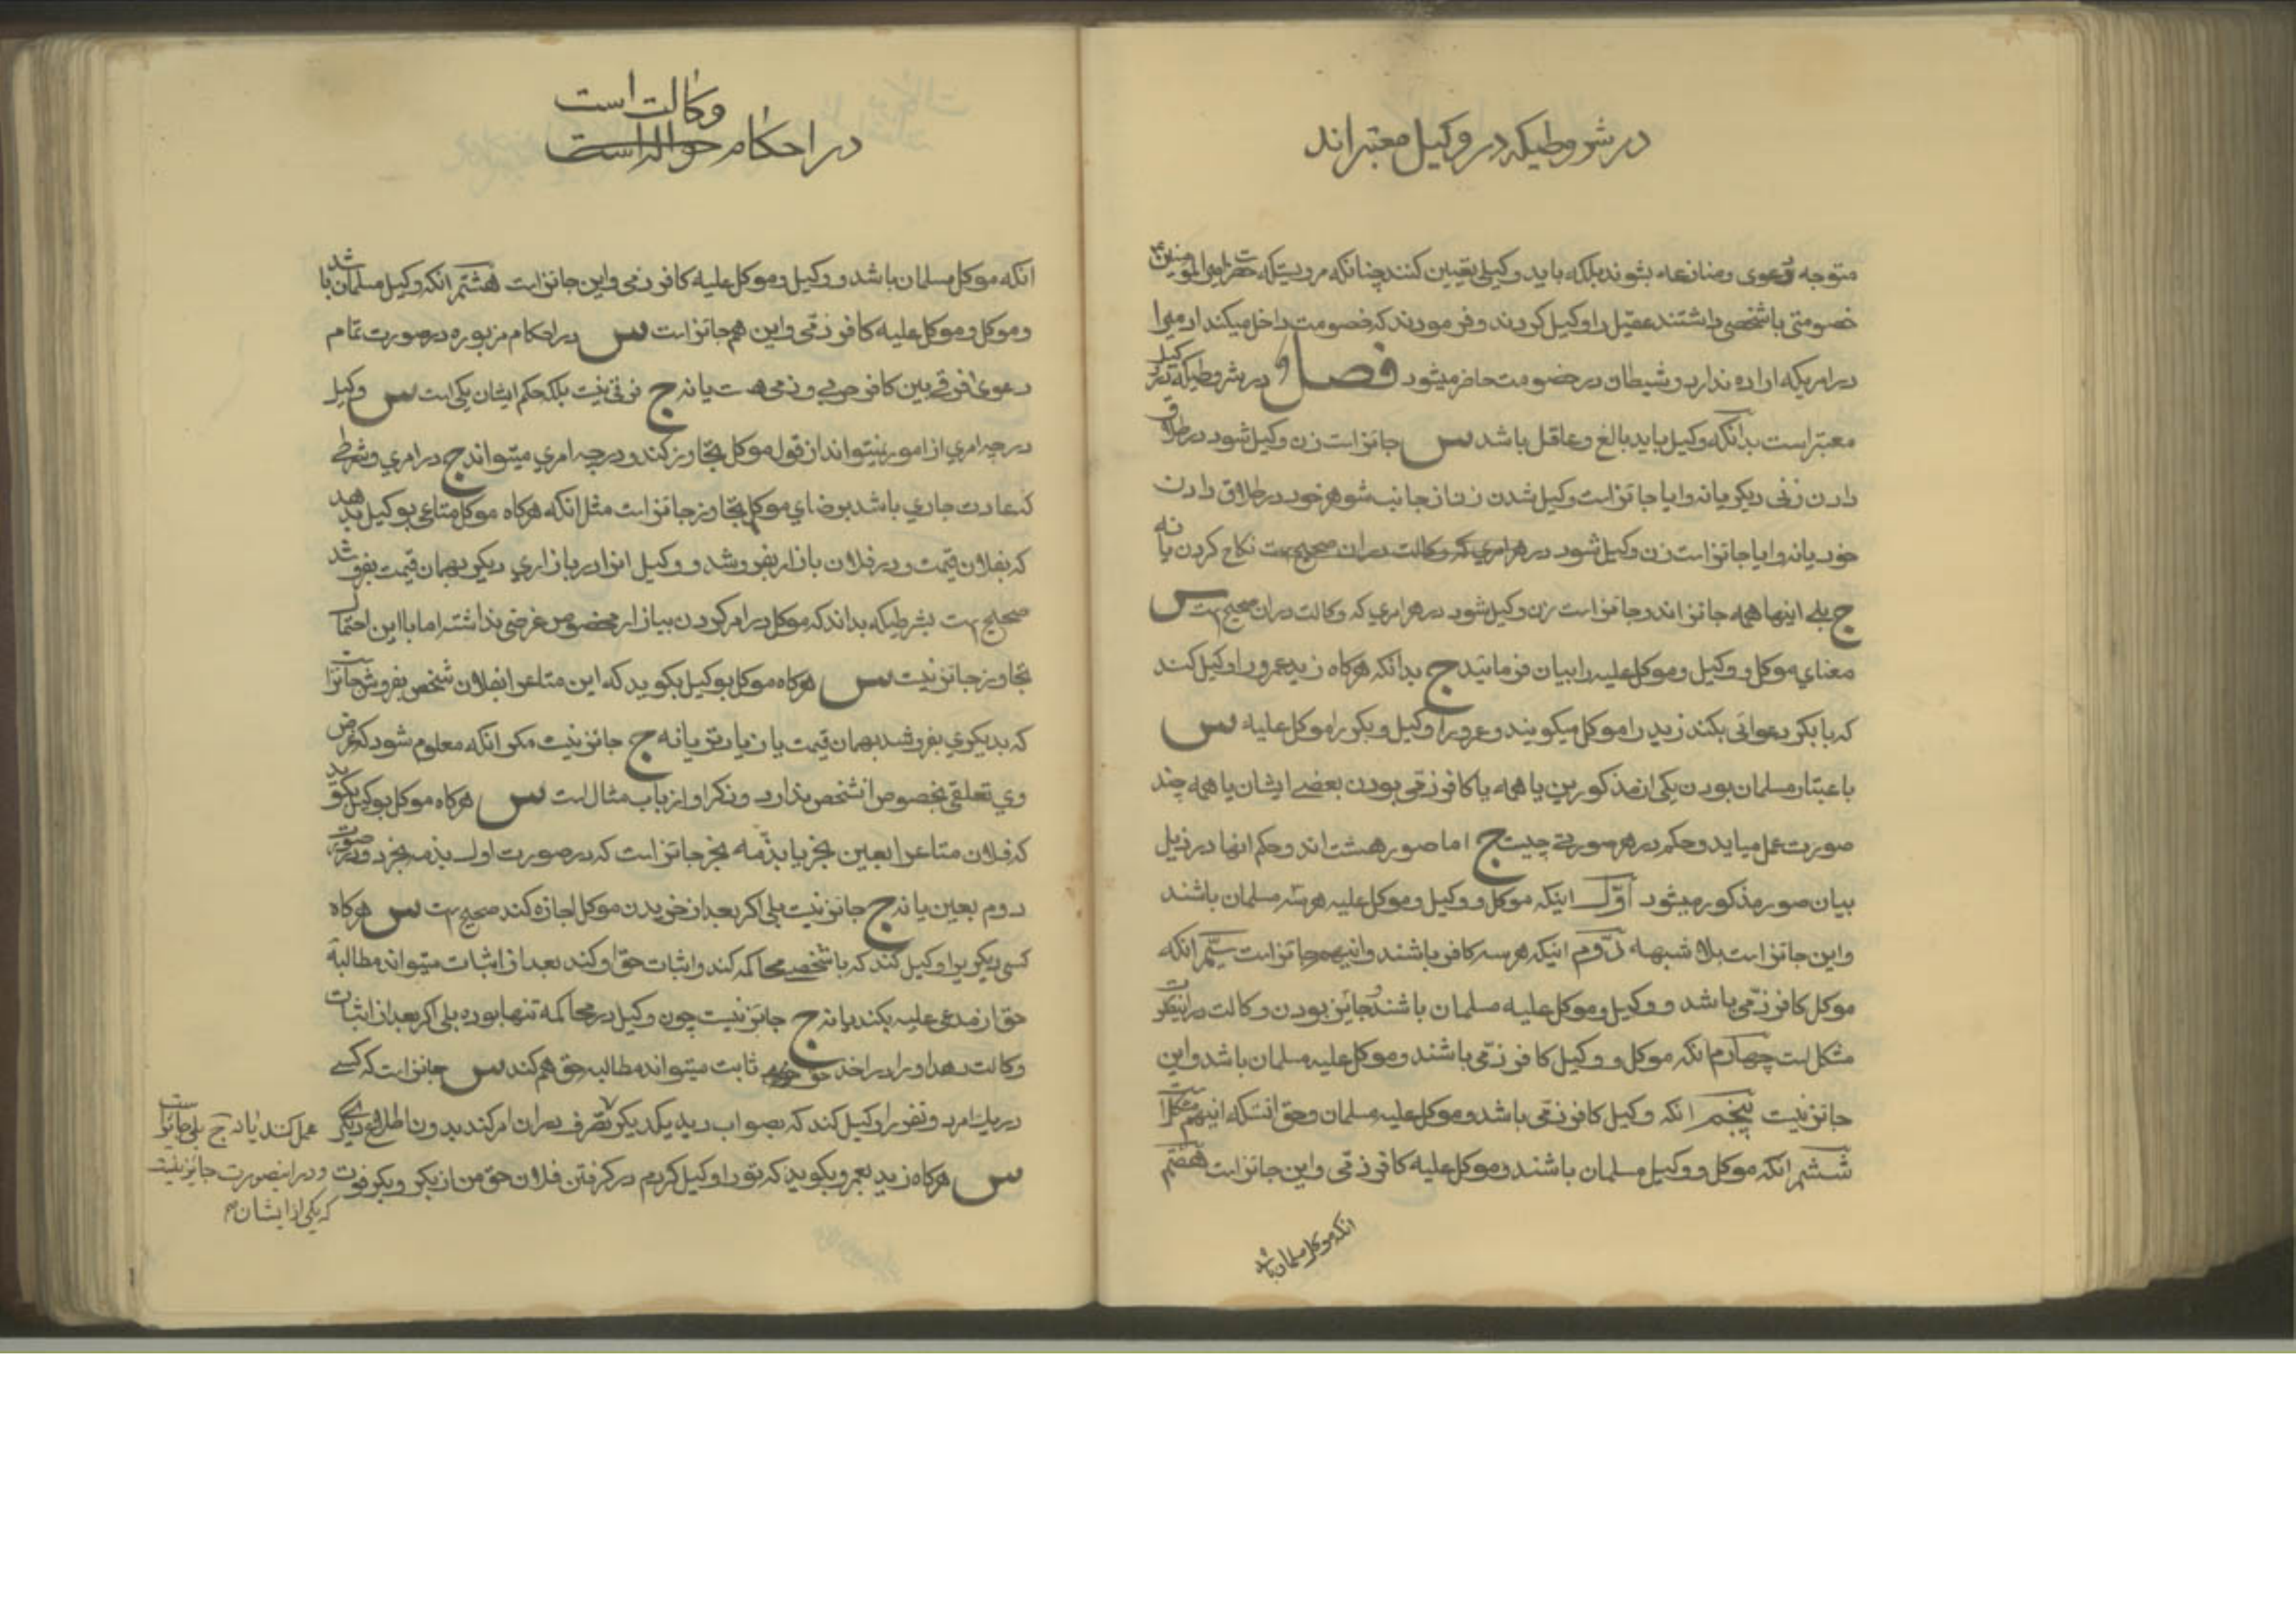 در شروطیکه در وکیل معتبراند
متوجه دعوی و منازعه بشوند بلکه باید وکیلی تعیین کنند چنانکه مرویستکه حضرت امیرالمومنین ع
خصومتی باشخصی داشتند عقیل را وکیل کردند و فرمودند که خصومت داخل میکند ادمیرا
در امریکه اراده ندارد و شیطان در خصومت حاضر میشود فصل و در شروطیکه در وکیل
معتبر است بدانکه وکیل باید بالغ و عاقل باشد س جانز است زن وکیل شود در طلاق
دادن زنی دیکر یا نه و ایا جانز است وکیل شدن زن از جانب شوهر خود در طلاق دادن
خود یا نه و ایا جانز است زن وکیل شود در هر امری که وکالت دران صحیح ست نکاح کردن یا نه
ج بلی اینها همه جانز اند و جانز است زن وکیل شود در هر امری که وکالت دران صحیح ست س
معنای موکل و وکیل و موکل علیه را بیان فرمائید ج بدانکه هرکاه زید عمرو را وکیل کند
که با بکر دعوائی بکند زید را موکل میکویند و عمرو را وکیل و بکر را موکل علیه س
باعتبار مسلمان بودن یکی از مذکورین یا همه یا کافر ذمی بودن بعضی ایشان یا همه چند
صورت عمل میاید و حکم در هر صورتی چیست ج اما صور هشت اند و حکم انها در ذیل
بیان صور مذکور میشود اول اینکه موکل و وکیل و موکل علیه هر سه مسلمان باشند
و این جانز است بلا شبهه دوم اینکه هر سه کافر باشند و اینهم جانز است سیم انکه
موکل کافر ذمی باشد و وکیل و موکل علیه مسلمان باشند و جائز بودن وکالت در اینصورت
مشکل است چهارم انکه موکل و وکیل کافر ذمی باشند و موکل علیه مسلمان باشد و این
جانز نیست پنجم انکه وکیل کافر ذمی باشد و موکل و علیه مسلمان و حق انستکه اینهم مشکل است
ششم انکه موکل و وکیل مسلمان باشند و موکل علیه کافر ذمی و این جانز است هفتم
انکه موکل مسلمان باشد
وکالت است
در احکام حواله است
انکه موکل مسلمان باشد و وکیل و موکل علیه کافر ذمی و این جانز است هشتم انکه وکیل مسلمان باشد
و موکل و موکل علیه کافر ذمی و این هم جانز است س در احکام مزبوره در صورت تمام
دعوی فرقی بین کافر حربی و ذمی هست یا نه ج فرقی نیست بلکه حکم ایشان یکی است س وکیل
در چه امری از امور نمیتواند از قول موکل تجاوز کند و در چه امری میتواند ج در امری و شرطی
که عادت جاری باشد برضای موکل تجاوز جانز است مثل انکه هرکاه موکل متاعی بوکیل بدهد
که بفلان قیمت و در فلان بازار بفروشد و وکیل انرا در بازاری دیکر بهمان قیمت بفروشد
صحیح ست بشرطیکه بداند که موکل در امر کردن ببازار مخصوص غرضی نداشته اما با این احتمال
تجاوز جانز نیست س هرکاه موکل بوکیل بکوید که این متاعرا بفلان شخص بفروش جانز است
که بدیکری بفروشد بهمان قیمت یا زیادتر یا نه ج جانز نیست مکر انکه معلوم شود که غرض
وی تعلقی بخصوص انشخص ندارد و ذکر او از باب مثال است س هرکاه موکل بوکیل بکوید
که فلان متاعرا بعین بخر یا بذمه بخر جانز است که در صورت اول بذمه بخرد و در صورت
دوم بعین یا نه ج جانز نیست بلی اکر بعد از خریدن موکل اجازه کند صحیح ست س هرکاه
کسی دیکریرا وکیل کند که باشخصی محاکمه کند و اثبات حق او کند بعد از اثبات میتواند مطالبه
حق از مدعی علیه بکند یا نه ج جانز نیست چون وکیل در محاکمه تنها بوده بلی اکر بعد از اثبات
وکالت دهد او را در اخذ حق ثابت میتواند مطالبه حق هم کند س جانز است که کسی
در یک امر دو نفر را وکیل کند که بصواب دید یکدیکر تصرف دران امر کند بدون اطلاع دیکری
عمل کند یا نه ج بلی جانز است
س هرکاه زید بعمرو بکوید که تو را وکیل کردم در کرفتن فلان حق من از بکر و بکر فوت
و در اینصورت جائز نیست
که یکی از ایشان